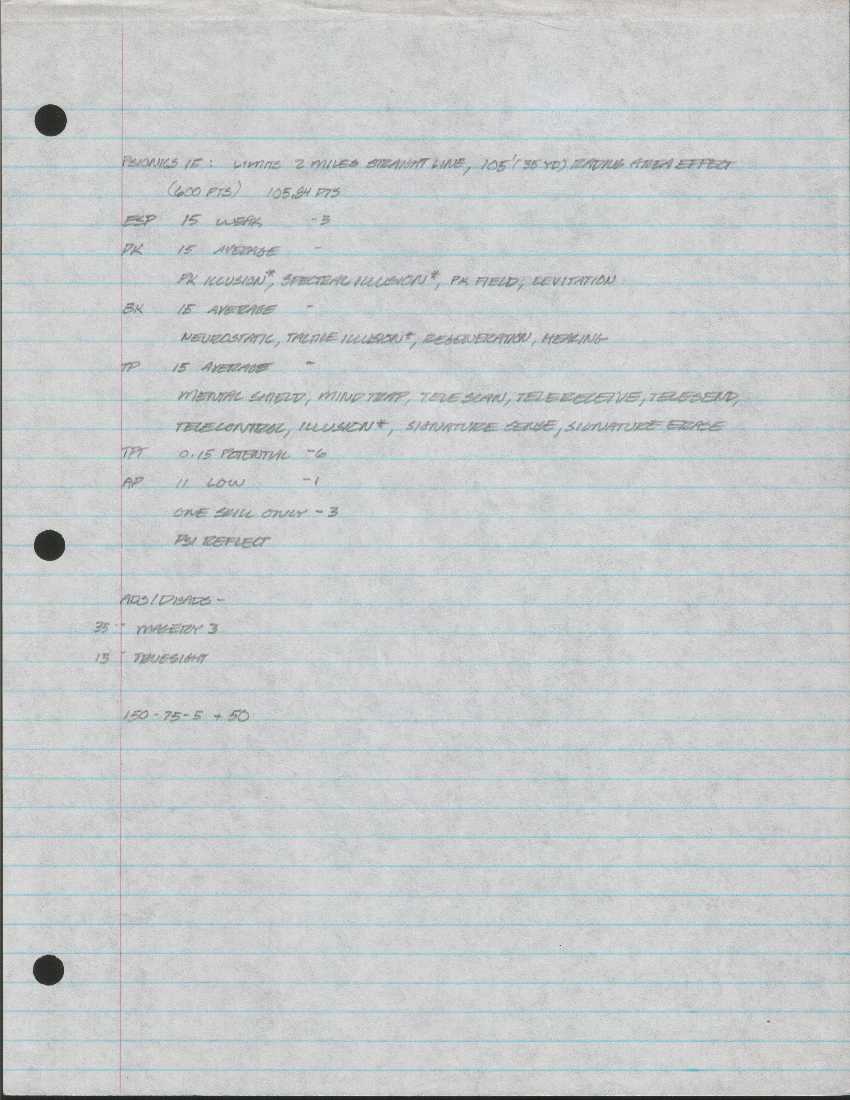 PSIONICS 15: LIMITS 2 MILES STRAIGHT LINE, 105' (35 YD) RADIUS AREA EFFECT
(600 PTS) 105.84 PTS
ESP 15 WEAK -3
PK 15 AVERAGE -
PK ILLUSION*, SPECTRAL ILLUSION*, PK FIELD, LEVITATION
BK 15 AVERAGE -
NEUROSTATIC, TACTILE ILLUSION*, REGENERATION, HEALING
TP 15 AVERAGE -
MENTAL SHIELD, MIND TRAP, TELESCAN, TELERECEIVE, TELESEND,
TELECONTROL, ILLUSION*, SIGNATURE SENSE, SIGNATURE ERASE
TPT 0.15 POTENTIAL -6
AP 11 LOW -1
ONE SKILL ONLY -3
PSI REFLECT
ADS/DISADS -
35 - MAGERY 3
15 - TRUESIGHT
150 - 75 - 5 + 50